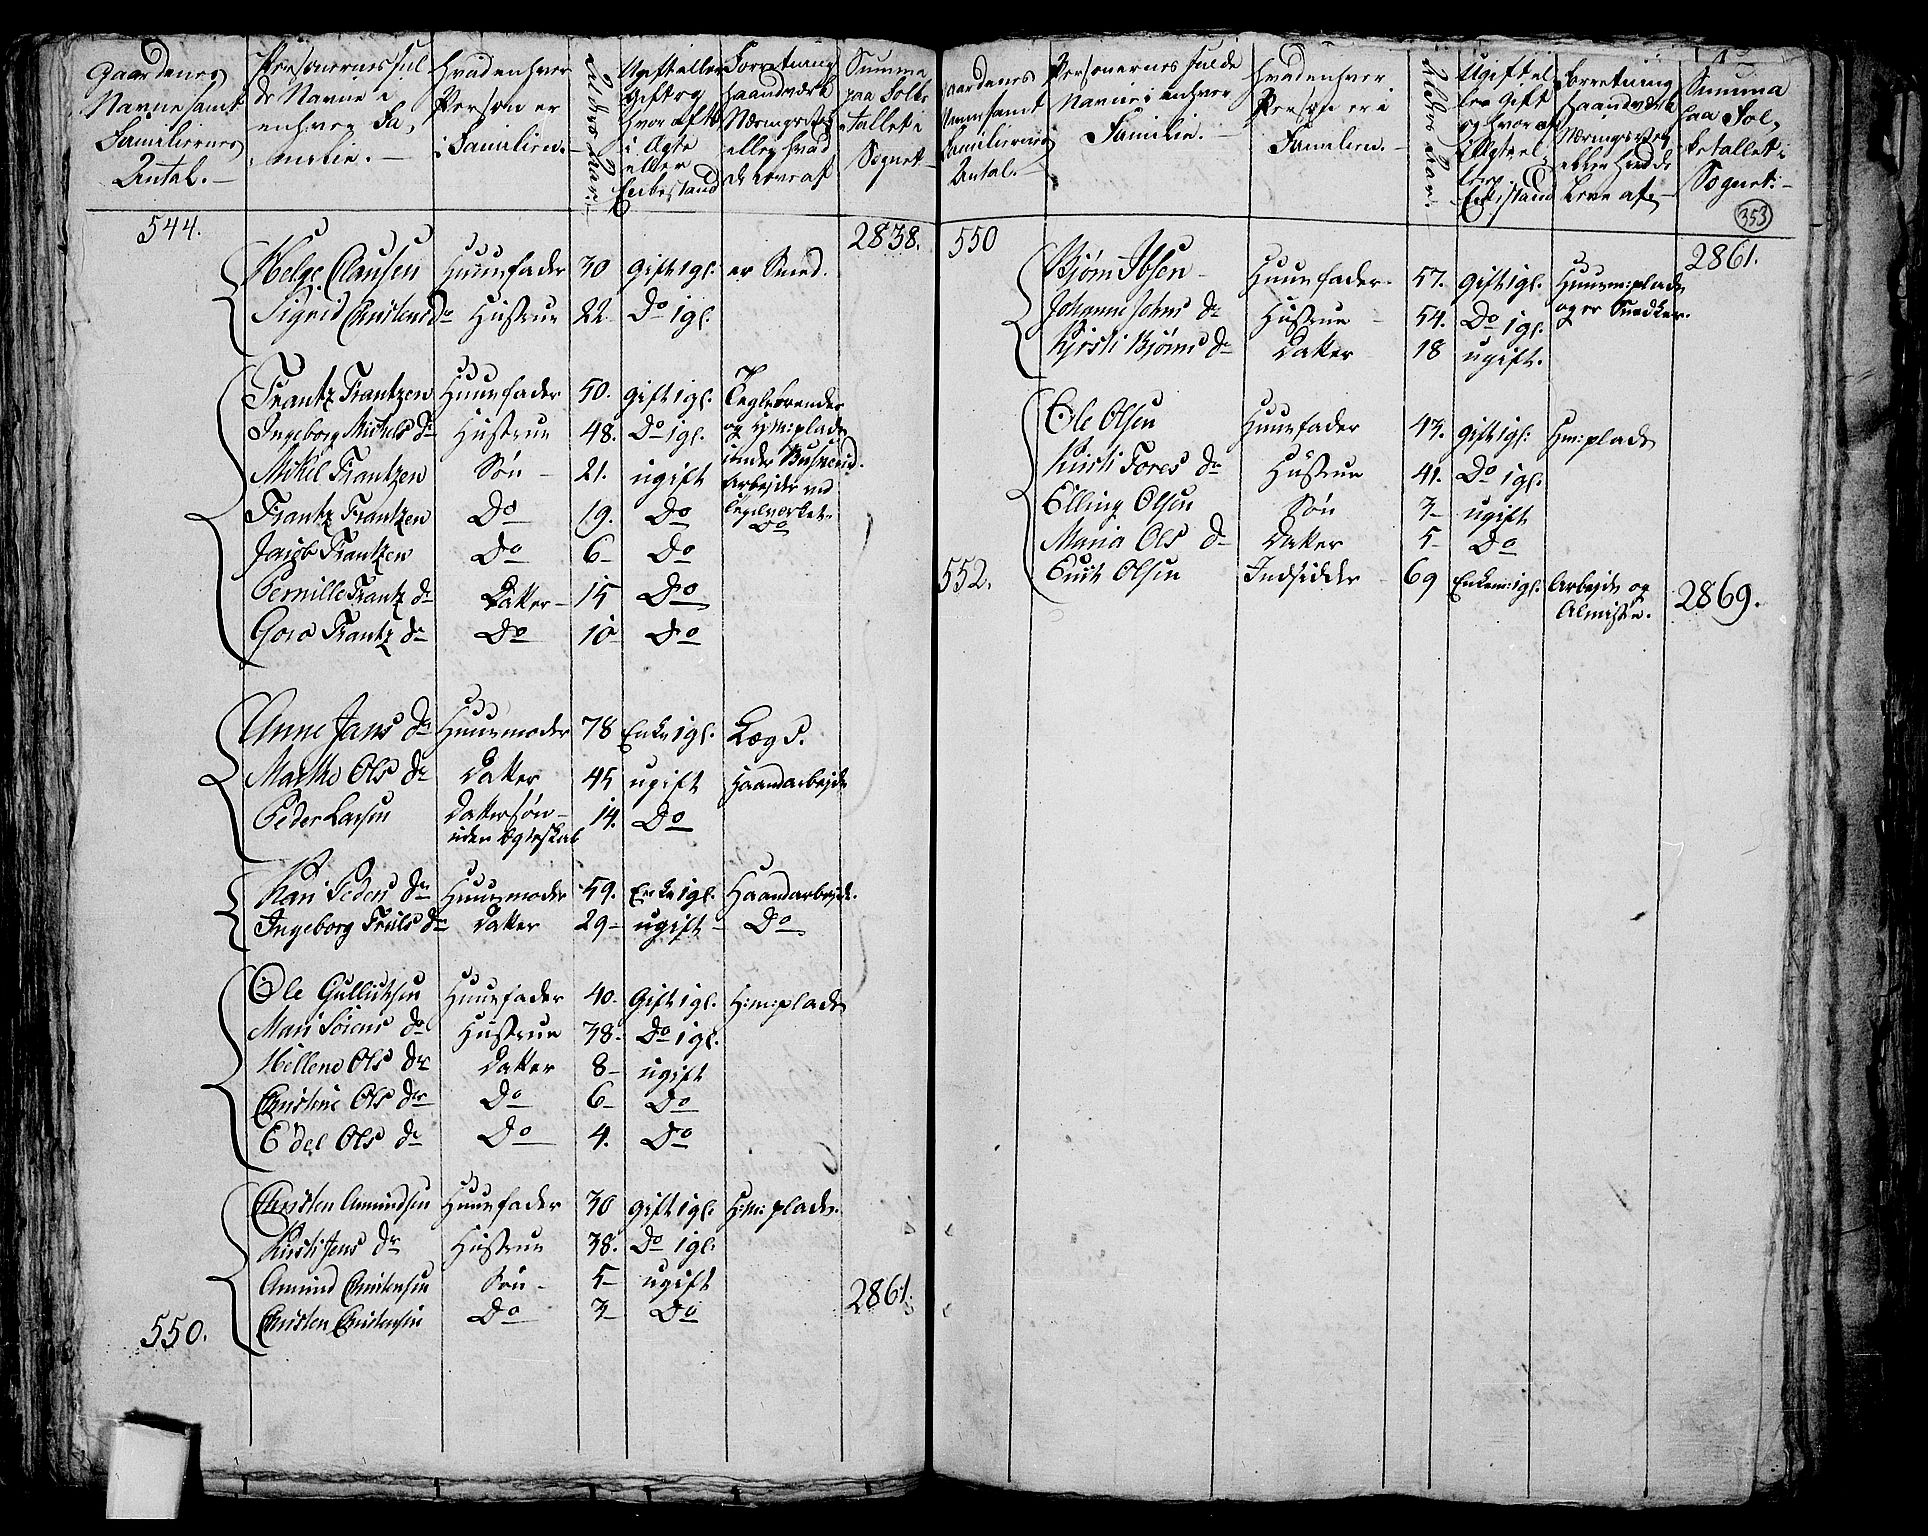 Gaardenes Navne samt Familiernes Antal. — | Personernes fulde Navne i enhver Familie. — | Hvad enhver Person er i Familien. — | Alders Aar. | Ugift eller Gift og hvor ofte i Ægte eller Enkestand | Forretning Haandværk Næringsvej eller hvad de Leve af | Summa paa Folketallet i Sognet
544. | 2838.
Helge Clausen | Huusfader | 30 | gift 1gl. | er Smed.
Sigrid Christens Dr | Hustrue | 22 | Do 1gl.
Frantz Frantzen | Huusfader | 50. | gift 1gl. | Teglbrender og H:m: plads under Buskerud.
Ingeborg Mikels Dr | Hustrue | 48. | Do 1gl.
Mikel Frantzen | Søn — | 21. | ugift | Arbejder ved Teglverket.
Frantz Frantzen | Do | 19. | Do | Do
Jacob Frantzen | Do | 6 — | Do
Pernille Frantz Dr | Datter — | 15 | Do
Goro Frantz Dr | Do | 10 | Do
Anne Jans Dr | Huusmoder | 78 | Enke 1gl. | Læg S.
Marthe Ols Dr | Datter | 45 | ugift | Haandarbejde
Peder Larsen | Dattersøn uden Ægteskab | 14. | Do
Kari Peders Dr | Huusmoder | 59. | Enke 1gl. | Haandarbejde.
Ingeborg Truls Dr | Datter | 29 — | ugift — | Do
Ole Gullichsen | Huusfader | 40 — | Gift 1gl. | H:m: plads
Mari Sørens Dr | Hustrue | 38. | Do 1gl.
Hellene Ols Dr | Datter | 8 — | ugift
Christine Ols Dr | Do | 6 — | Do
Edel Ols Dr | Do | 4. | Do
Christen Amundsen | Huusfader | 30 | gift 1gl. | H:m: plads.
Kirsti Jens Dr | Hustrue | 38. | Do 1gl.
Amund Christensen | Søn — | 5 — | ugift
Christen Christensen | Do | 3 — | Do
550. | 2861.
Gaardenes Navne samt Familiernes Antal. — | Personernes fulde Navne i enhver Familie. — | Hvad enhver Person er i Familien. — | Alders Aar. | Ugift eller Gift og hvor oft i Ægte eller Enkestand | Forretning Haandværk Næringsvej eller hvad de Leve af | Summa paa Folketallet i Sognet. —
353
550 | 2861.
Bjørn Ibsen — | Huusfader — | 57. | gift 1gl. | Huusm: plads og er Snedker.
Johanne Johns Dr | Hustrue — | 54. | Do 1gl.
Kjirsti Bjørns Dr | Datter | 18 | ugift.
Ole Olsen | Huusfader | 43. | gift 1gl: | Hm: plads
Kirsti Tores Dr | Hustrue | 41. | Do 1gl.
Elling Olsen | Søn | 7 — | ugift
Maria Ols Dr | Datter | 5 — | Do
552. | Olsen | Indsidder | 69 | Enkem: 1gl. | Arbejde og Almisse. | 2869.